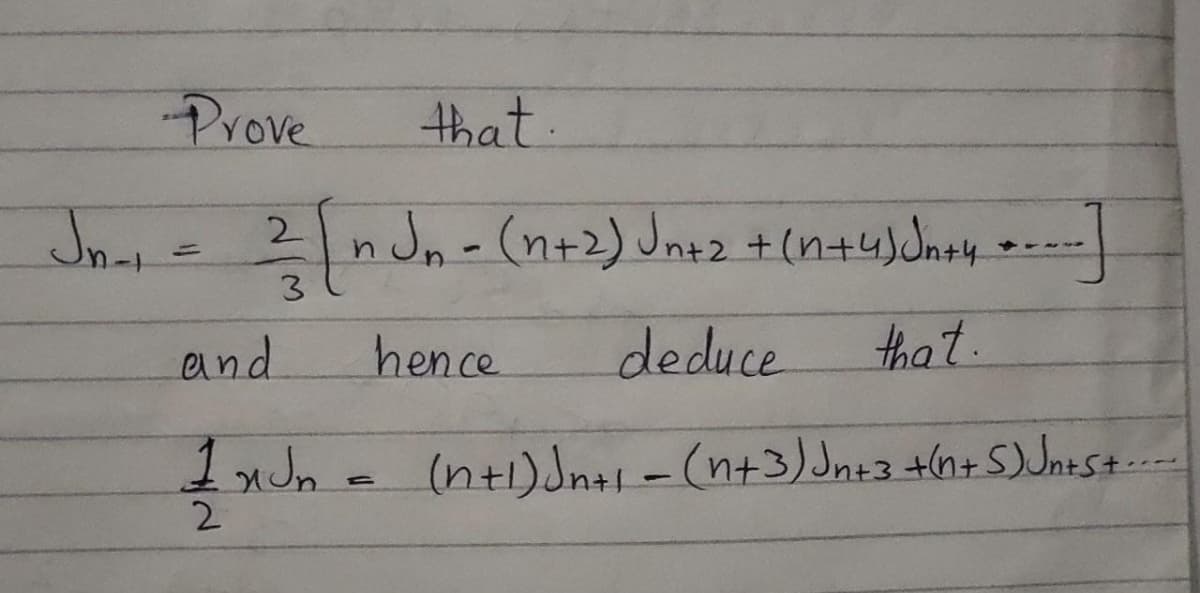 Prove that.
Jn-1 = 2/3 [n Jn - (n+2) Jn+2 + (n+4) Jn+4 + ----]
and hence deduce that.
1/2 x Jn = (n+1) Jn+1 - (n+3) Jn+3 + (n+5) Jn+5 + ----